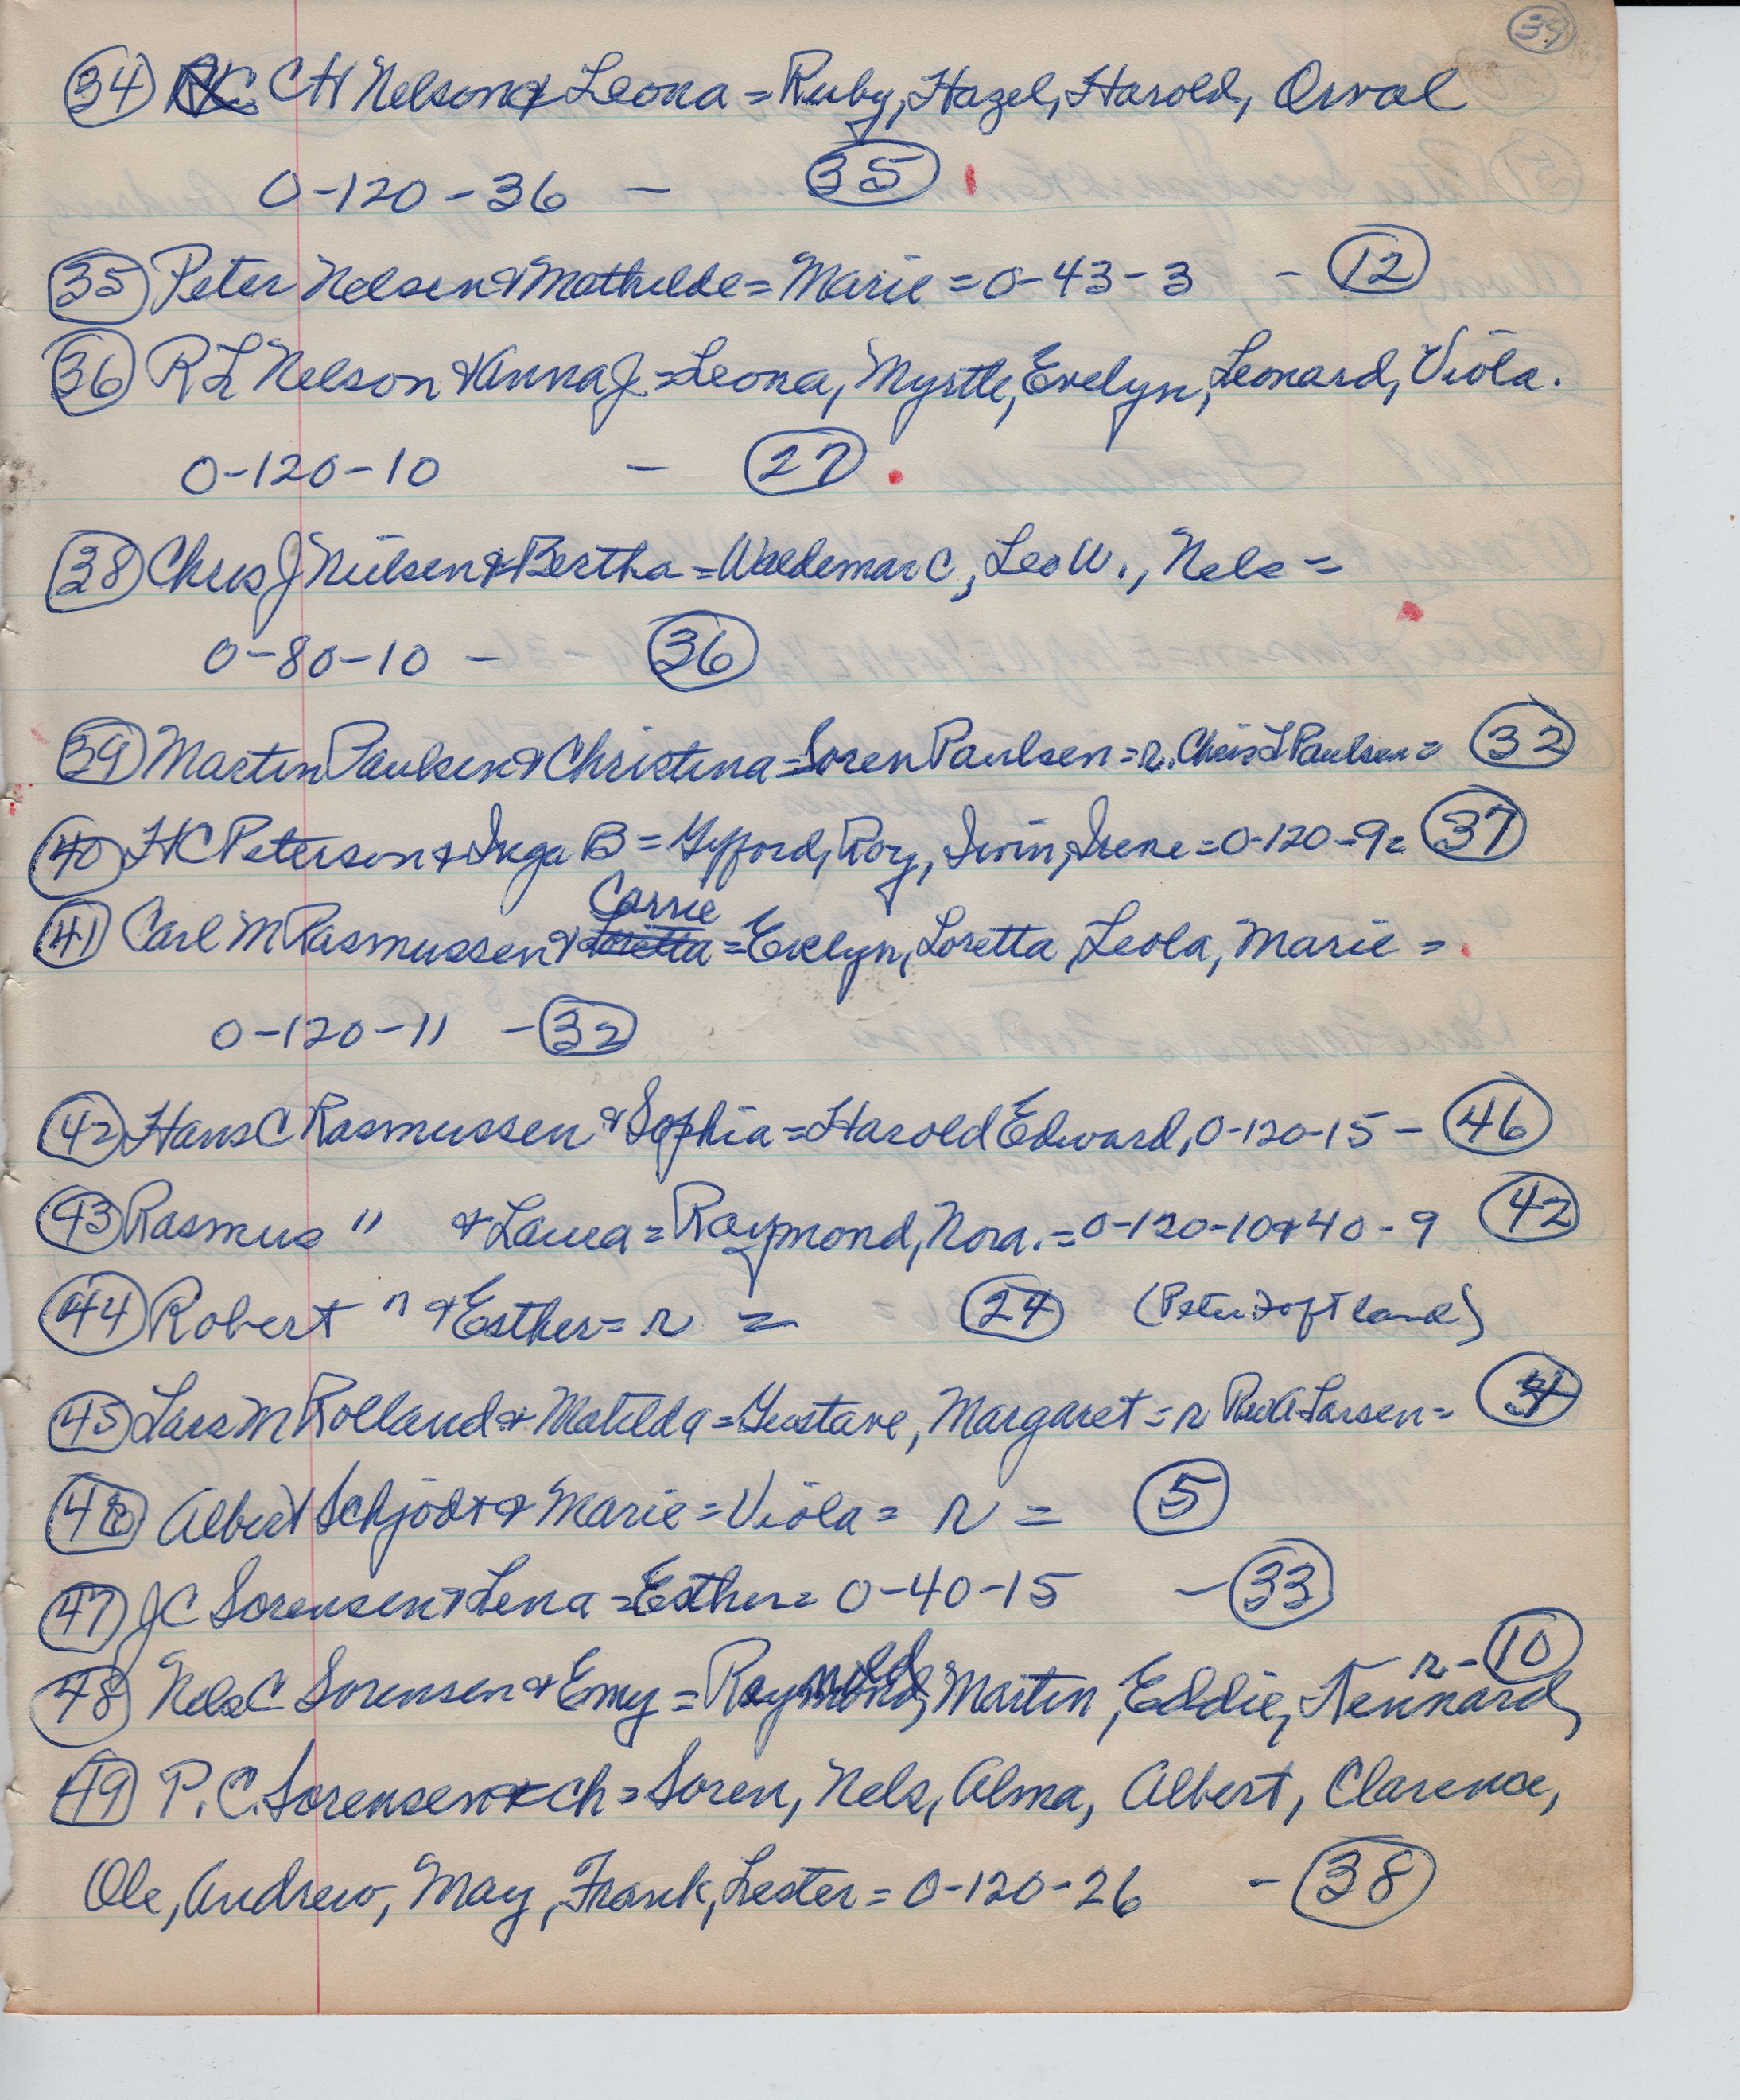 39
34 CH Nelson & Leona = Ruby, Hazel, Harold, Orval
0-120-36 - 35
35 Peter Nelsen & Mathilde = Marie = 0-43-3 - 12
36 RL Nelson & Anna J = Leona, Myrtle, Evelyn, Leonard, Viola.
0-120-10 - 27
38 Chris J Nielsen & Bertha = Waldemar C, Leo W., Nels =
0-80-10 - 36
39 Martin Paulsen & Christina = Soren Paulsen = r. Chris L Paulsen = 32
40 HC Peterson & Inga B = Gyfford, Roy, Irvin, Irene = 0-120-9 = 37
Carrie
41 Carl M Rasmussen & Loretta = Evelyn, Loretta, Leola, Marie =
0-120-11 - 32
42 Hans C Rasmussen & Sophia = Harold Edward, 0-120-15 - 46
43 Rasmus " & Laura = Raymond, Nora. = 0-120-10 & 40-9 42
44 Robert " & Esther = r = 24 (Peter Toft land)
45 Lars M Rolland & Matilda = Gustave, Margaret = r Rev A Larsen =
46 Albert Schjödt & Marie = Viola = r = 5
47 JC Sorensen & Lena = Esther = 0-40-15 - 33
r - 10
48 Nels C Sorensen & Emy = Martin, Eddie, Kennard,
49 P. C. Sorensen & ch = Soren, Nels, Alma, Albert, Clarence,
Ole, Andrew, May, Frank, Lester = 0-120-26 - 38